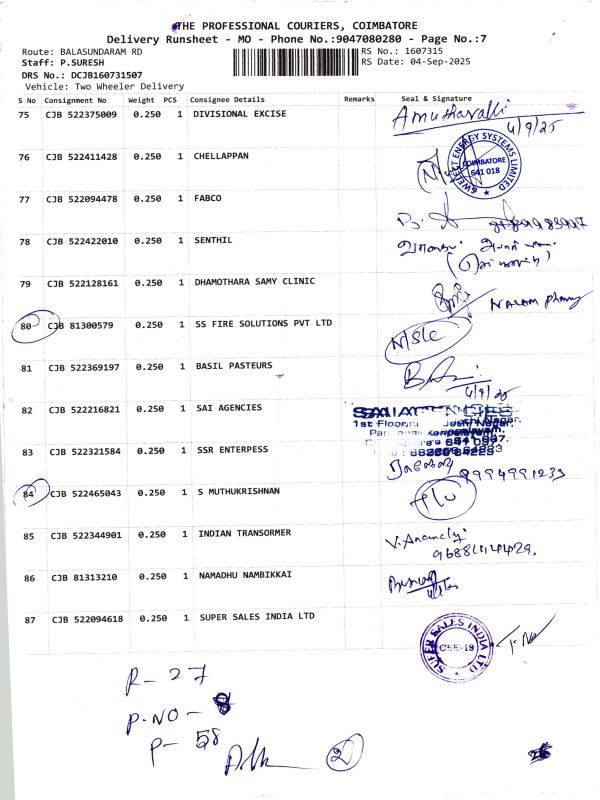 THE PROFESSIONAL COURIERS, COIMBATORE
Delivery Runsheet - MO - Phone No.:9047080280 - Page No.:7
Route: BALASUNDARAM RD
RS No.: 1607315
Staff: P.SURESH
RS Date: 04-Sep-2025
DRS No.: DCJB160731507
Vehicle: Two Wheeler Delivery
S No Consignment No Weight PCS Consignee Details Remarks Seal & Signature
75 CJB 522375009 0.250 1 DIVISIONAL EXCISE Amuthavalli
4/9/25
76 CJB 522411428 0.250 1 CHELLAPPAN
SWELECT ENERGY SYSTEMS LIMITED
COIMBATORE
641 018
77 CJB 522094478 0.250 1 FABCO
78 CJB 522422010 0.250 1 SENTHIL
79 CJB 522128161 0.250 1 DHAMOTHARA SAMY CLINIC
NALAM pharmy
80 CJB 81300579 0.250 1 SS FIRE SOLUTIONS PVT LTD
N/SLC
81 CJB 522369197 0.250 1 BASIL PASTEURS
4/9/25
82 CJB 522216821 0.250 1 SAI AGENCIES
1st Floor
83 CJB 522321584 0.250 1 SSR ENTERPESS
9994991233
84 CJB 522465043 0.250 1 S MUTHUKRISHNAN
85 CJB 522344901 0.250 1 INDIAN TRANSORMER
86 CJB 81313210 0.250 1 NAMADHU NAMBIKKAI
87 CJB 522094618 0.250 1 SUPER SALES INDIA LTD
SUPER SALES INDIA LTD
CBE-18
R - 27
P.NO -
P - 58
2